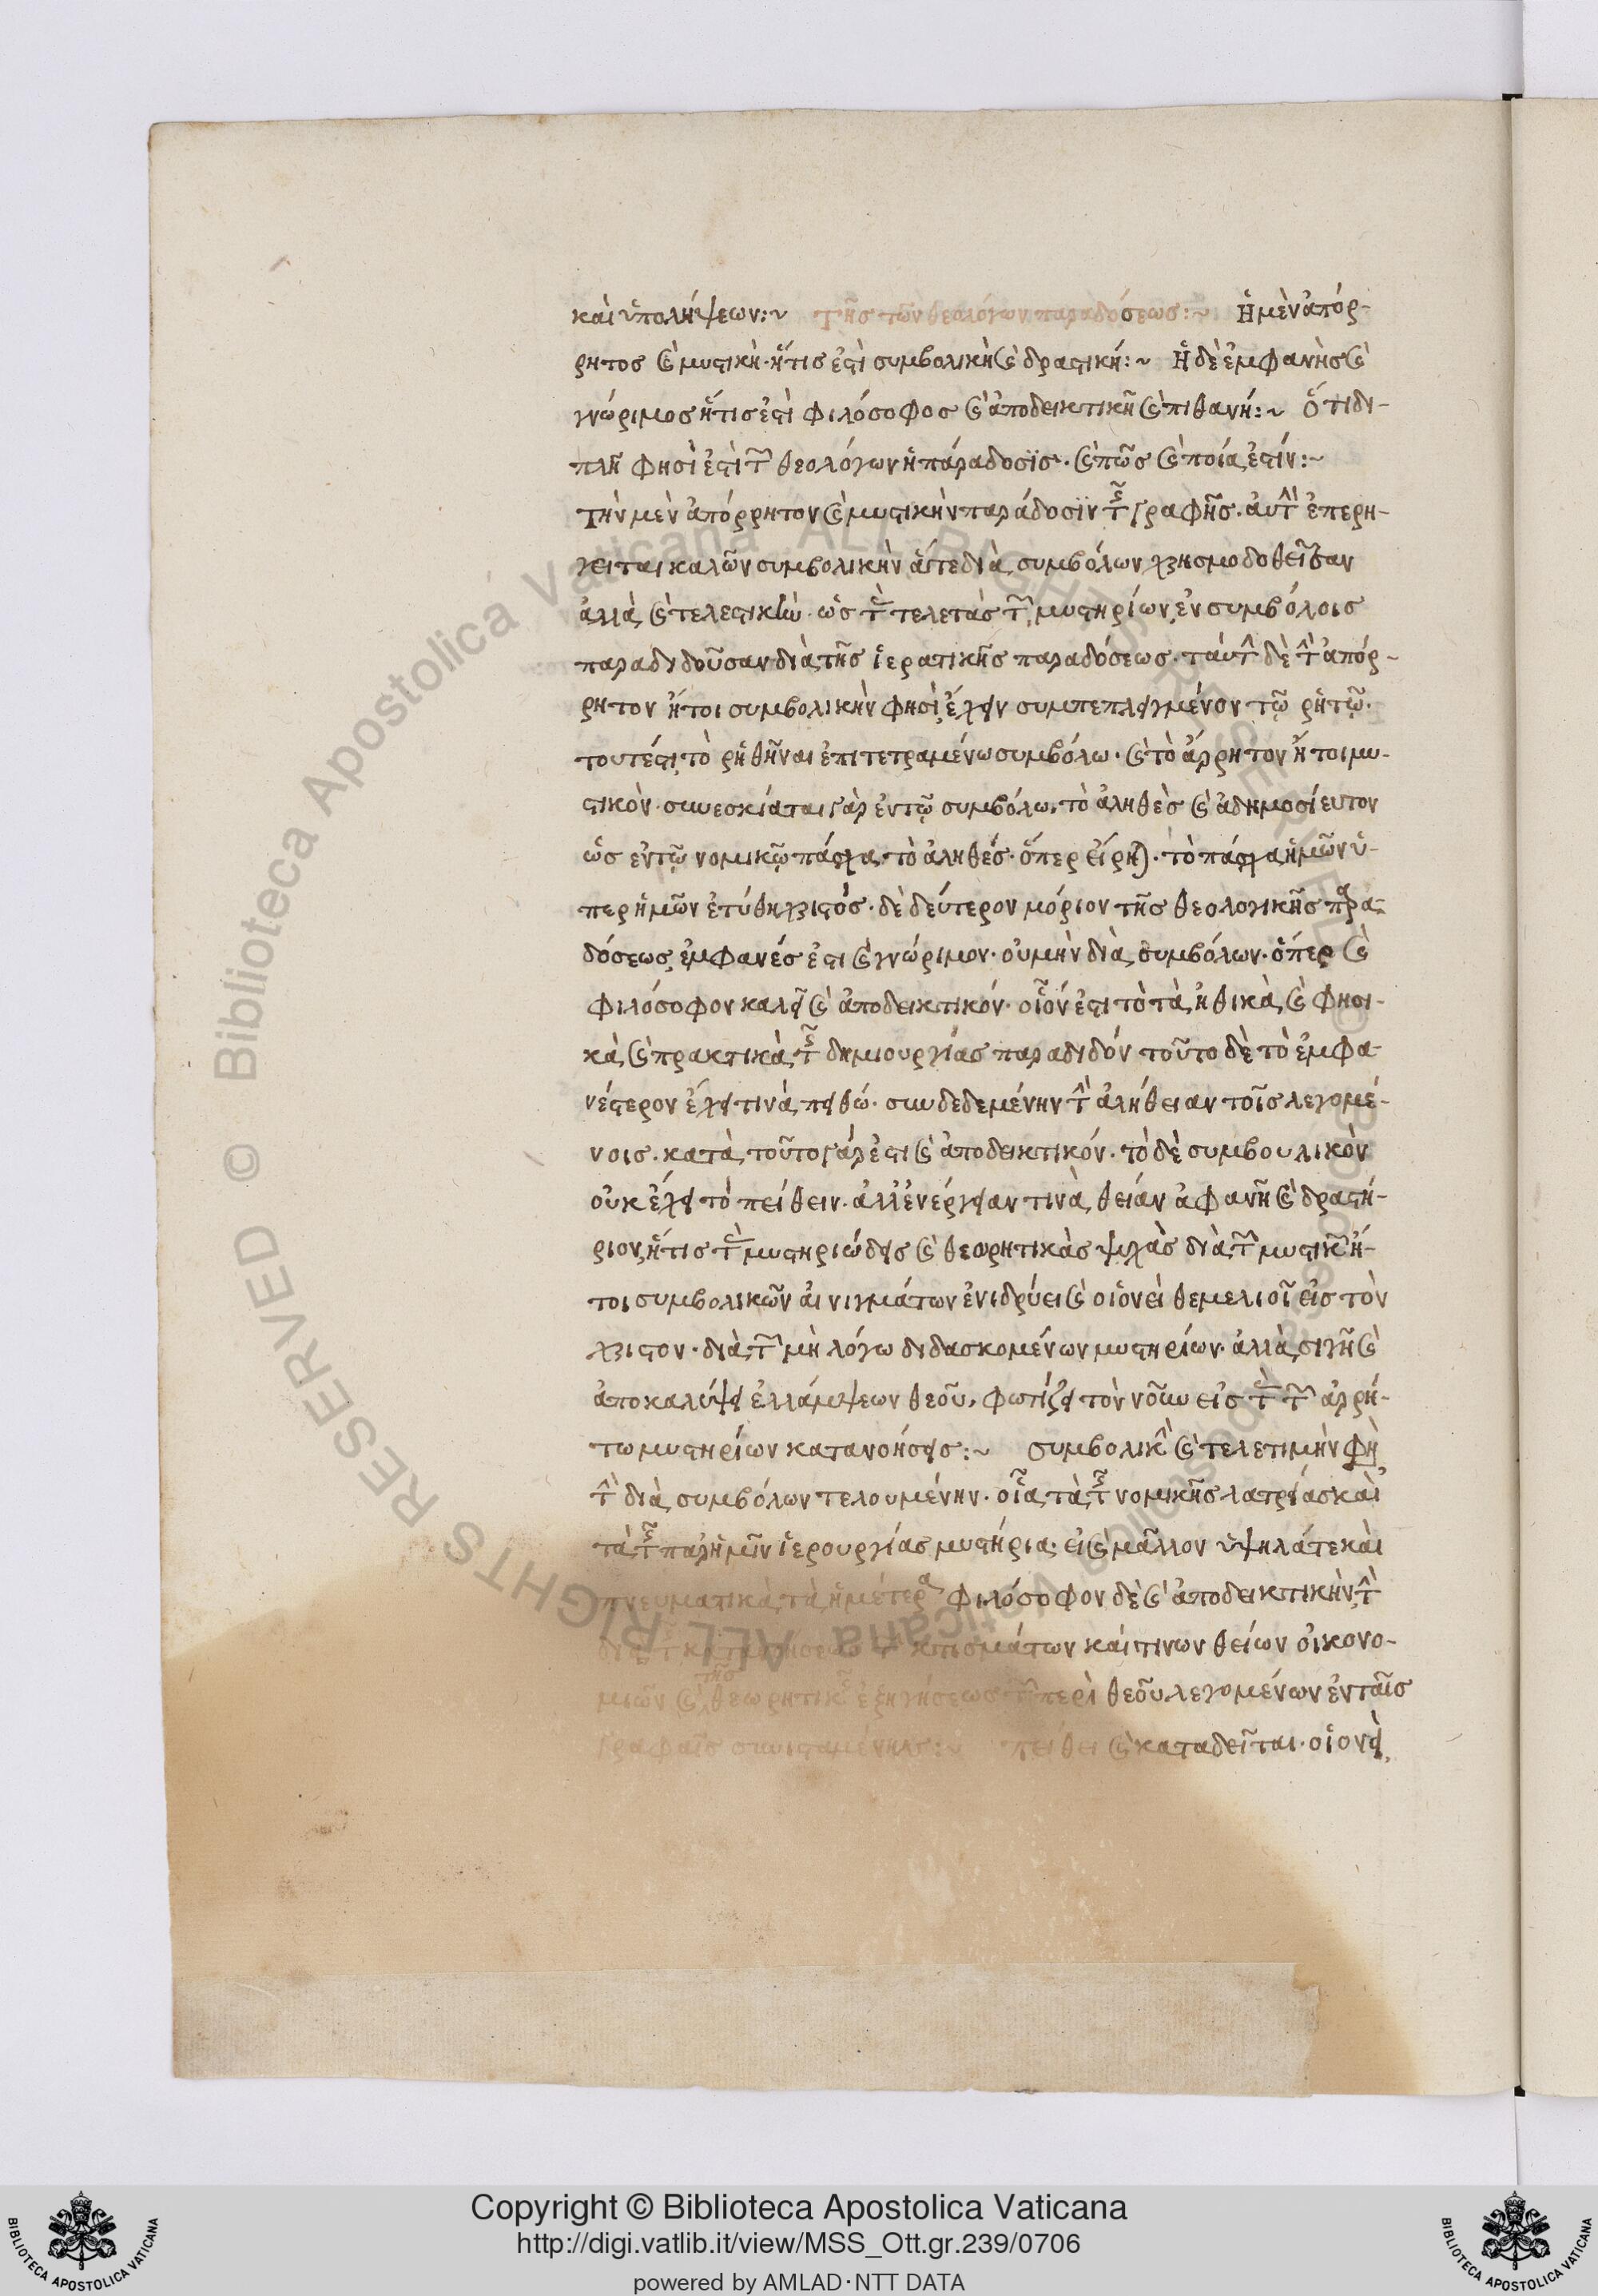 καὶ ὑπολήψεων:~ Τῆς τῶν θεολόγων παραδόσεως:~ Ἡ μὲν ἀπόρ-
ρητος καὶ μυστικὴ· ἥτις ἐστὶ συμβολικὴ καὶ δραστική:~ Ἡ δὲ ἐμφανὴς καὶ
γνώριμος ἥτις ἐστὶ φιλόσοφος καὶ ἀποδεικτικὴ καὶ πιθανή:~ Ὅτι δι-
πλῆ φησὶ ἐστὶ τῶν θεολόγων ἡ πάραδοσϊς· καὶ πῶς καὶ ποία ἐστίν:~
Τὴν μὲν ἀπόρρητον καὶ μυστικὴν παράδοσϊν τῆς γραφῆς. αὐτὴν ἐπερη-
γεῖται καλῶν συμβολικὴν ἅτε διὰ συμβόλων χρησμοδοθεῖσαν
ἀλλὰ καὶ τελεστικὴν· ὡς τὰς τελετὰς τῶν μυστηρίων ἐν συμβόλοις
παραδιδοῦσαν διὰ τῆς ἱερατικῆς παραδόσεως. ταύτην δὲ τὴν ἀπόρ-
ρητον ἤτοι συμβολικὴν φησὶ ἔχειν συμπεπλεγμένον τῷ ῥητῷ.
τουτέστι τὸ ῥηθῆναι ἐπιτετραμένω συμβόλω. καὶ τὸ ἄρρητον ἤτοι μυ-
στικὸν. συνεσκίασται γὰρ ἐν τῷ συμβόλω, τὸ ἀληθὲς καὶ ἀδημοσίευτον
ὡς ἐν τῷ νομικῷ πάσχα, τὸ ἀληθές. ὅπερ εἴρηται. τὸ πάσχα ἡμῶν ὑ-
περ ἡμῶν ἐτύθη χριστός. δὲ δεύτερον μόριον τῆς θεολογικῆς παρα-
δόσεως, ἐμφανές ἐστι καὶ γνώριμον. οὐ μὴν διὰ συμβόλων. ὅπερ καὶ
φιλόσοφον καλεῖ καὶ ἀποδεικτικόν. οἷόν ἐστι τὸ τὰ ἠθικὰ καὶ φησι-
κὰ καὶ πρακτικὰ τῆς δημιουργίας παραδιδόν τοῦτο δὲ τὸ ἐμφα-
νέστερον ἔχει τινὰ πειθώ. συνδεδεμένην τὴν ἀλήθειαν τοῖς λεγομέ-
νοις. κατὰ τοῦτο γάρ ἐστι καὶ ἀποδεικτικόν. τὸ δὲ συμβουλικὸν
οὐκ ἔχει τὸ πείθειν. ἀλλ' ἐνέργειαν τινὰ θείαν ἀφανῆ καὶ δραστή-
ριον, ἥτις τὰς μυστηριώδεις καὶ θεωρητικὰς ψυχὰς διὰ τῶν μυστικῶν ἤ-
τοι συμβολικῶν αἰνιγμάτων ἐνιδρύει καὶ οἱονεὶ θεμελιοῖ εἰς τὸν
χριστον. διὰ τῶν μὴ λόγω διδασκομένων μυστηρίων. ἀλλὰ σιγῇ καὶ
ἀποκαλύψει ἐλλάμψεων θεοῦ, φωτίζει τὸν νοῦν εἰς τὰς τῶν ἀρρή-
τω μυστηρίων κατανοήσεις:~ συμβολικὴν καὶ τελετιμὴν φησὶ
τὴν διὰ συμβόλων τελουμένην. οἷα τὰ τῆς νομικῆς λατρείας καὶ
τὰ τῆς παρ' ἡμῖν ἱερουργίας μυστήρια. εἰ καὶ μᾶλλον ὑψηλά τε καὶ
πνευματικὰ τὰ ἡμέτερα φιλόσοφον δὲ καὶ ἀποδεικτικὴν, τὴν
διὰ τῆς κτισμάτων καί τινων θείων οἰκονο-
μιῶν καὶ τῆς θεωρητικῆς ἐξηγήσεως τῶν περὶ θεοῦ λεγομένων ἐν ταῖς
γραφαῖς συνισταμένην:~ πείθει καὶ καταδεῖται. οἱονεὶ